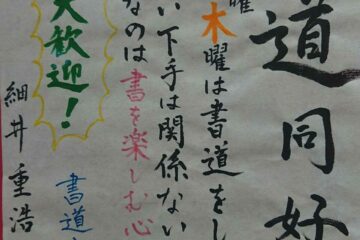 道同好
木曜は書道をし
い下手は関係ない
なのは書を楽しむ心
大歓迎！
書道
細井重浩